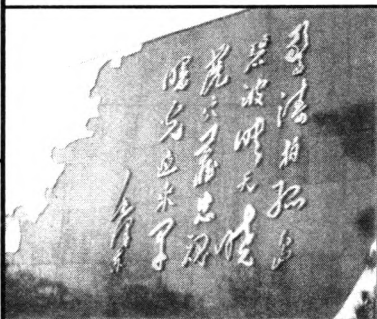 驚涛拍孤島
碧波映天曉
虎穴藏忠魂
曙光迎来早
毛泽东